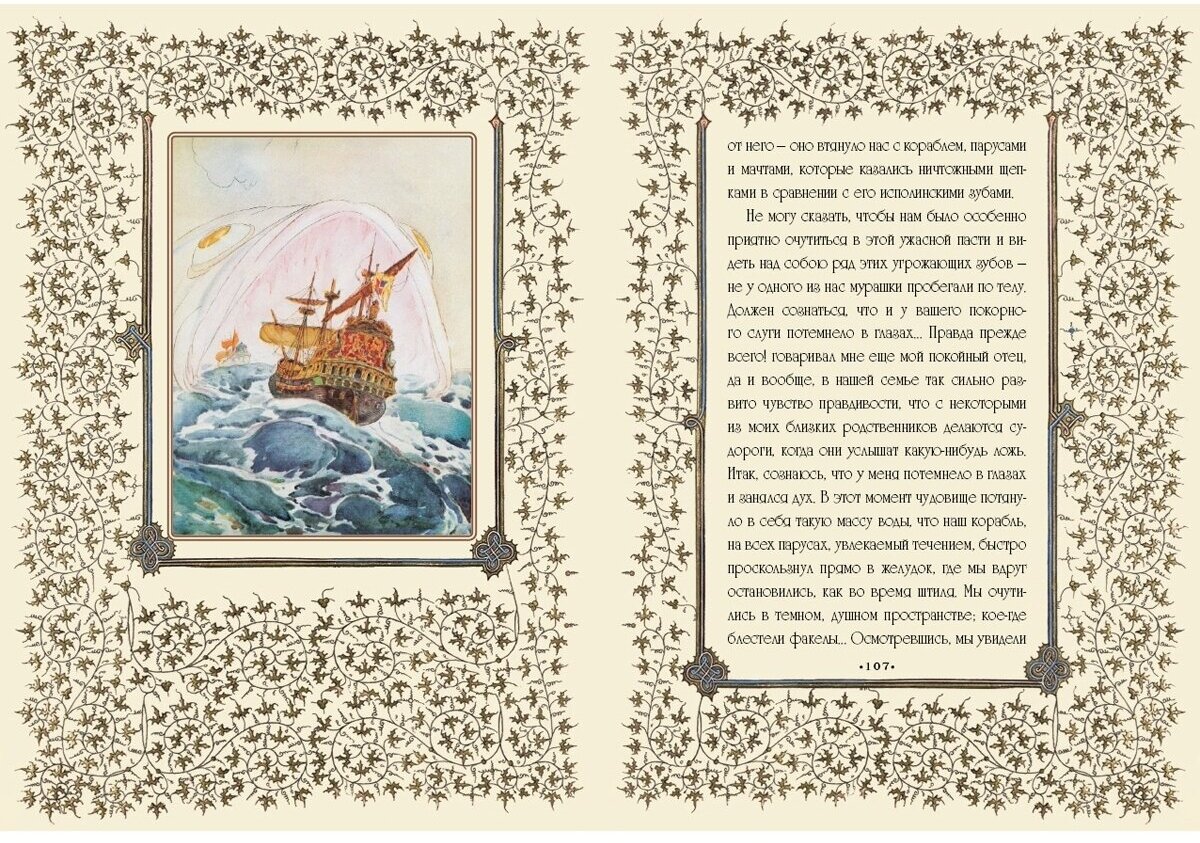 от него — оно втянуло нас с кораблем, парусами
и мачтами, которые казались ничтожными щеп-
ками в сравнении с его исполинскими зубами.
Не могу сказать, чтобы нам было особенно
приятно очутиться в этой ужасной пасти и ви-
деть над собою ряд этих угрожающих зубов —
не у одного из нас мурашки пробегали по телу.
Должен сознаться, что и у вашего покорно-
го слуги потемнело в глазах... Правда прежде
всего! говаривал мне еще мой покойный отец,
да и вообще, в нашей семье так сильно раз-
вито чувство правдивости, что с некоторыми
из моих близких родственников делаются су-
дороги, когда они услышат какую-нибудь ложь.
Итак, сознаюсь, что у меня потемнело в глазах
и занялся дух. В этот момент чудовище потяну-
ло в себя такую массу воды, что наш корабль,
на всех парусах, увлекаемый течением, быстро
проскользнул прямо в желудок, где мы вдруг
остановились, как во время штиля. Мы очути-
лись в темном, душном пространстве; кое-где
блестели факелы... Осмотревшись, мы увидели
•107•